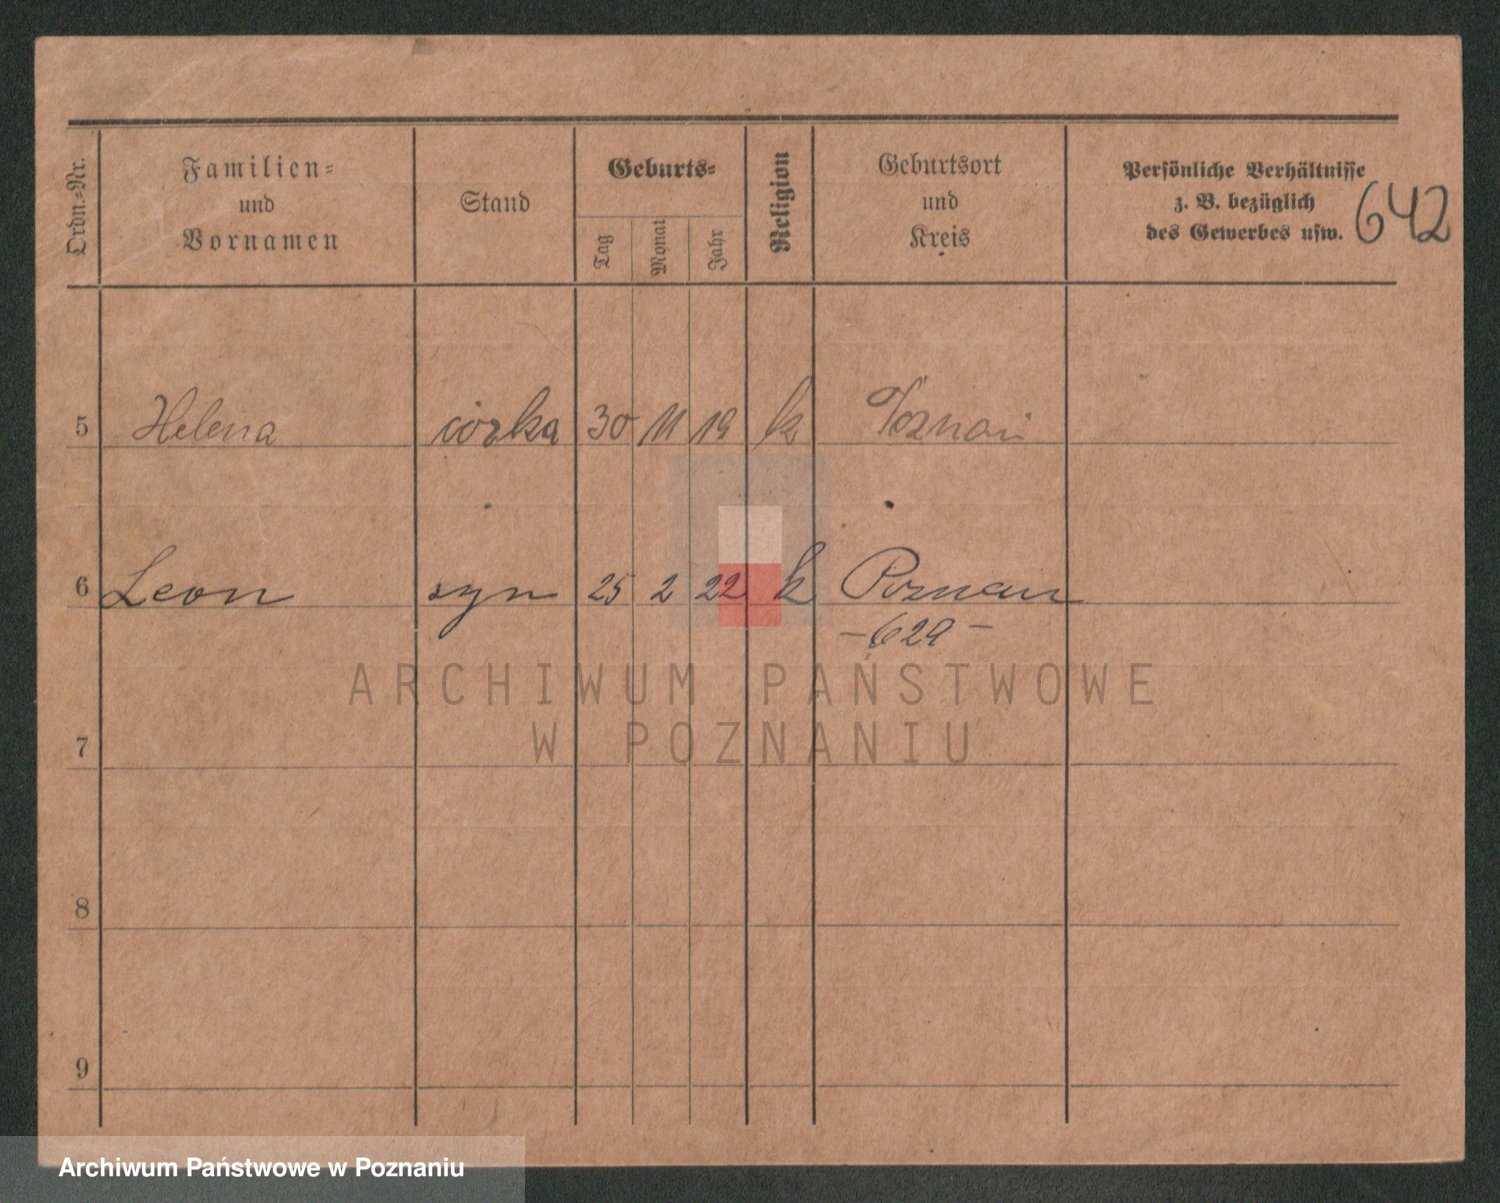 Ordn.-Nr.
Familien-
und
Vornamen
Stand
Geburts-
Tag
Monat
Jahr
Religion
Geburtsort
und
Kreis
Persönliche Verhältnisse
z. B. bezüglich
des Gewerbes usw.
642
5 Helena córka 30 11 19 k Poznań
6 Leon syn 25 2 22 k Poznań
- 629 -
7
8
9
ARCHIWUM PAŃSTWOWE
W POZNANIU
Archiwum Państwowe w Poznaniu